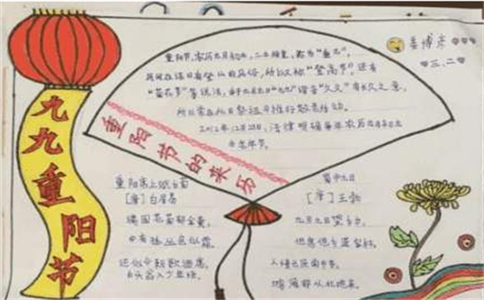 九九重阳节
重阳节,农历九月初九,二九相重,称为“重九”。
民间在该日有登高的风俗,所以又称“登高节”。还有
“菊花节”等说法。由于九月九日“九九”谐音“久久”有长久之意,
所以常在此日祭祖与推行敬老活动。
2012年12月28日,法律明确每年农历九月初九
为老年节。
重阳节的来历
三.二
重阳席上赋白菊
[唐]白居易
满园花菊郁金黄,
中有孤丛色似霜。
还似今朝歌酒席,
白头翁入少年场。
蜀中九日
[唐]王勃
九月九日望乡台,
他席他乡送客杯。
人情已厌南中苦,
鸿雁那从北地来。